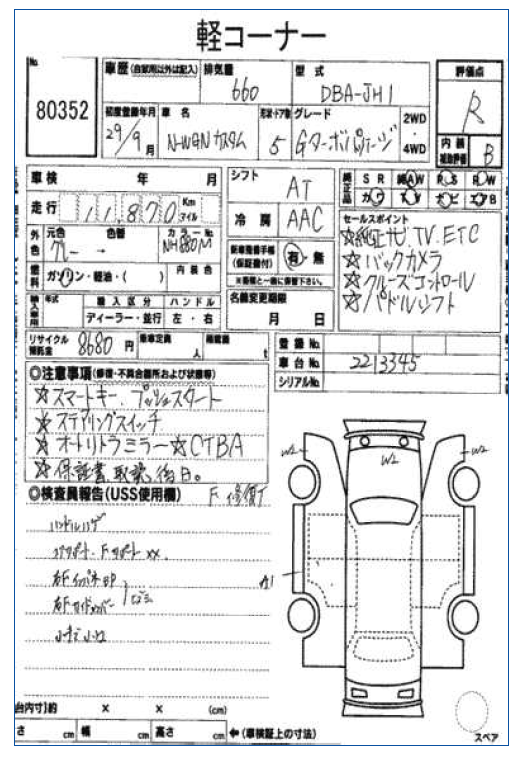 軽コーナー
No. 80352
車歴(自家用以外は記入) 排気量 660 型式 DBA-JH1 評価点 R
初度登録年月 29/9月 車名 N-WGN カスタム 形状・ドア数 5 グレード Gターボパッケージ 2WD・4WD 内装補助評価 B
車検 年 月
シフト AT
純正品 SR 純AW PS PW
カワ TV ナビ エアB
走行 11,870 Km マイル
冷房 AAC
セールスポイント
☆純正ナビ.TV.ETC
☆バックカメラ
☆クルーズコントロール
☆パドルシフト
外色 元色 グレー 色替 → カラーNo. NH880M
新車整備手帳(保証書付) 有・無
燃料 ガソリン・軽油・( ) 内装色
輸入車用 年式 輸入区分 ハンドル
ディーラー・並行 左・右
名義変更期限
月 日
リサイクル預託金 8680円 乗車定員 人 積載量 t
登録No.
車台No. 2213345
シリアルNo.
◎注意事項(修復・不具合箇所および状態等)
☆スマートキー.プッシュスタート
☆ステアリングスイッチ
☆オートリトラミラー☆CTBA
☆保証書、取説、後日。
◎検査員報告(USS使用欄) F 修復有
ハンドルハゲ
コアサポート.Fサポート XX.
右Fインパネ
右F
小キズ 小凹
W2
W2
W2
A1
台内寸)約 × × (cm)
さ cm 幅 cm 高さ cm ←(車検証上の寸法)
スペア